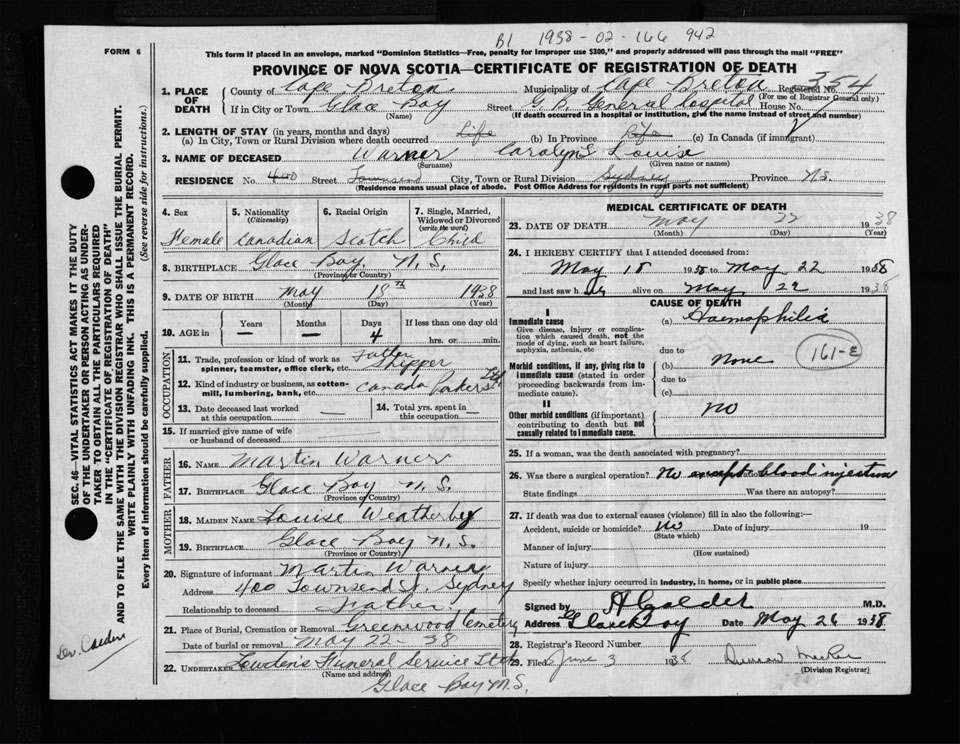 B1 1938-02-166 942
FORM 6
This form if placed in an envelope, marked "Dominion Statistics—Free, penalty for improper use $300," and properly addressed will pass through the mail "FREE"
PROVINCE OF NOVA SCOTIA—CERTIFICATE OF REGISTRATION OF DEATH
1. PLACE OF DEATH
County of Cape Breton Municipality of Cape Breton Registered No. 354
(For use of Registrar General only)
If in City or Town Glace Bay Street G.B. General Hospital House No.
(Name) (If death occurred in a hospital or institution, give the name instead of street and number)
2. LENGTH OF STAY (in years, months and days)
(a) In City, Town or Rural Division where death occurred Life (b) In Province Life (c) In Canada (if immigrant)
3. NAME OF DECEASED Warner Carolyn Louise
(Surname) (Given name or names)
RESIDENCE No. 400 Street Townsend City, Town or Rural Division Sydney Province N.S.
(Residence means usual place of abode. Post Office Address for residents in rural parts not sufficient)
4. Sex
Female
5. Nationality
(Citizenship)
Canadian
6. Racial Origin
Scotch
7. Single, Married, Widowed or Divorced
(write the word)
Child
8. BIRTHPLACE Glace Bay, N.S.
(Province or Country)
9. DATE OF BIRTH May 18th 1938
(Month) (Day) (Year)
10. AGE in Years — Months — Days 4 If less than one day old
hrs. or min.
OCCUPATION
11. Trade, profession or kind of work as spinner, teamster, office clerk, etc. Father Shipper
12. Kind of industry or business, as cotton-mill, lumbering, bank, etc. Canada Packers Ltd
13. Date deceased last worked at this occupation —
14. Total yrs. spent in this occupation —
15. If married give name of wife or husband of deceased
FATHER
16. NAME Martin Warner
17. BIRTHPLACE Glace Bay N.S.
(Province or Country)
MOTHER
18. MAIDEN NAME Louise Weatherbey
19. BIRTHPLACE Glace Bay N.S.
(Province or Country)
20. Signature of informant Martin Warner
Address 400 Townsend St. Sydney
Relationship to deceased Father
21. Place of Burial, Cremation or Removal Greenwood Cemetery
Date of burial or removal May 22-38
22. UNDERTAKER Funeral Service Ltd
(Name and address)
Glace Bay N.S.
MEDICAL CERTIFICATE OF DEATH
23. DATE OF DEATH May 22 1938
(Month) (Day) (Year)
24. I HEREBY CERTIFY that I attended deceased from:
May 18 1938 to May 22 1938
and last saw her alive on May 22 1938
CAUSE OF DEATH
I
Immediate cause
Give disease, injury or complication which caused death, not the mode of dying, such as heart failure, asphyxia, asthenia, etc
(a) Haemophilia
due to
Morbid conditions, if any, giving rise to immediate cause (stated in order proceeding backwards from immediate cause).
(b) None
due to
(c)
161-E
II
Other morbid conditions (if important) contributing to death but not causally related to immediate cause.
no
25. If a woman, was the death associated with pregnancy?
26. Was there a surgical operation? No except blood injection
State findings Was there an autopsy?
27. If death was due to external causes (violence) fill in also the following:—
Accident, suicide or homicide? No Date of injury 19
(State which)
Manner of injury
(How sustained)
Nature of injury
Specify whether injury occurred in industry, in home, or in public place
Signed by M.D.
Address Glace Bay Date May 26 1938
28. Registrar's Record Number
29. Filed June 3 1938
(Division Registrar)
SEC. 46—VITAL STATISTICS ACT MAKES IT THE DUTY OF THE UNDERTAKER OR PERSON ACTING AS UNDERTAKER TO OBTAIN ALL THE PARTICULARS REQUIRED IN THE "CERTIFICATE OF REGISTRATION OF DEATH" AND TO FILE THE SAME WITH THE DIVISION REGISTRAR WHO SHALL ISSUE THE BURIAL PERMIT.
WRITE PLAINLY WITH UNFADING INK. THIS IS A PERMANENT RECORD.
Every item of information should be carefully supplied. (See reverse side for instructions.)